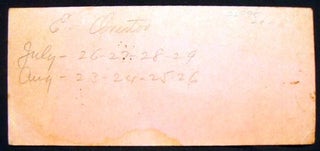 E. Overton
July - 26-27-28-29
Aug - 23-24-25-26